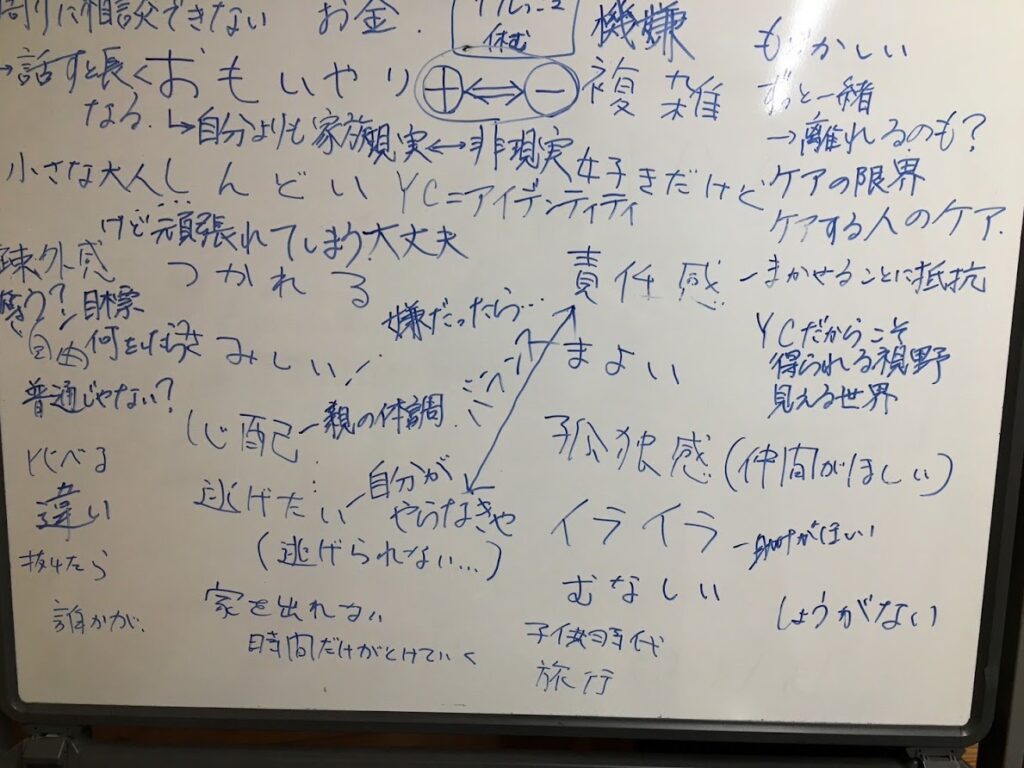 周りに相談できない
お金.
休む
機嫌
→話すと長く
なる.
おもいやり
⊕⇔⊖
複雑
↳自分よりも家族
現実↔非現実
もどかしい
ずっと一緒
→離れるのも?
小さな大人
しんどい
YC=アイデンティティ
好きだけど
ケアの限界
ケアする人のケア.
けど頑張れてしまう
大丈夫
疎外感
つかれる
責任感
-まかせることに抵抗
目標
嫌だったら…
自由
何を
さみしい
まよい
YCだからこそ
得られる視野
見える世界
普通じゃない?
心配
-親の体調
孤独感
(仲間がほしい)
比べる
違い
逃げたい
自分が
やらなきゃ
イライラ
-助けがほしい
抜けたら
(逃げられない…)
むなしい
誰かが.
家を出れない
時間だけがとけていく
子供時代
旅行
しょうがない